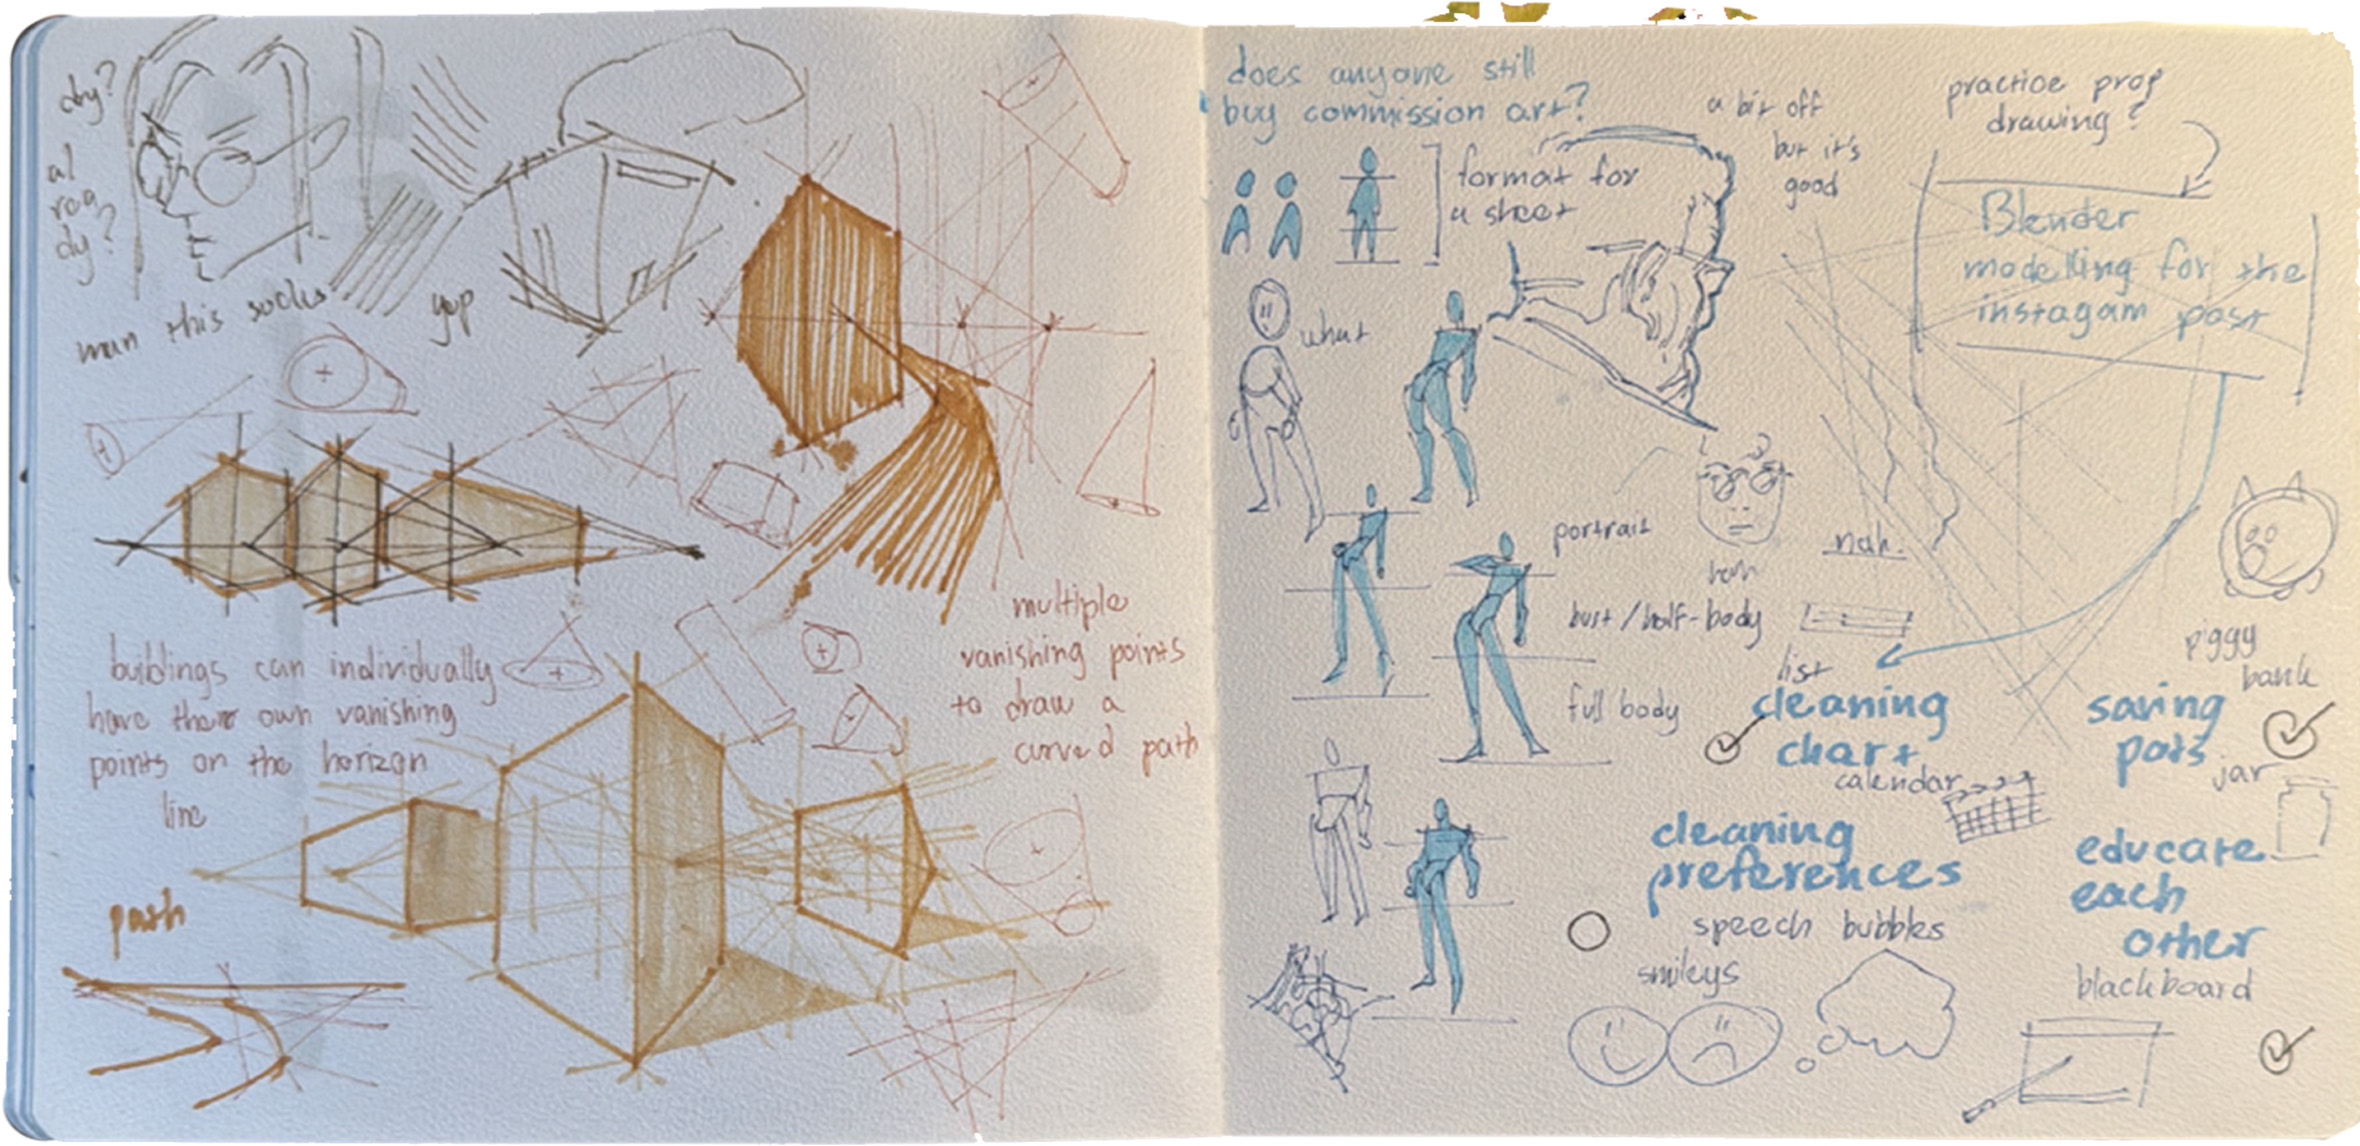 dry?
al
rea
dy?
man this sucks
yup
buildings can individually
have their own vanishing
points on the horizon
line
multiple
vanishing points
to draw a
curved path
path
does anyone still
buy commission art?
format for
a sheet
a bit off
but it's
good
practice prop
drawing?
Blender
modelling for the
instagam post
what
portrait
nah.
bust/half-body
full body
list
cleaning
chart
calendar
piggy
bank
saving
pots
jar
cleaning
preferences
speech bubbles
smileys
educate
each
other
blackboard